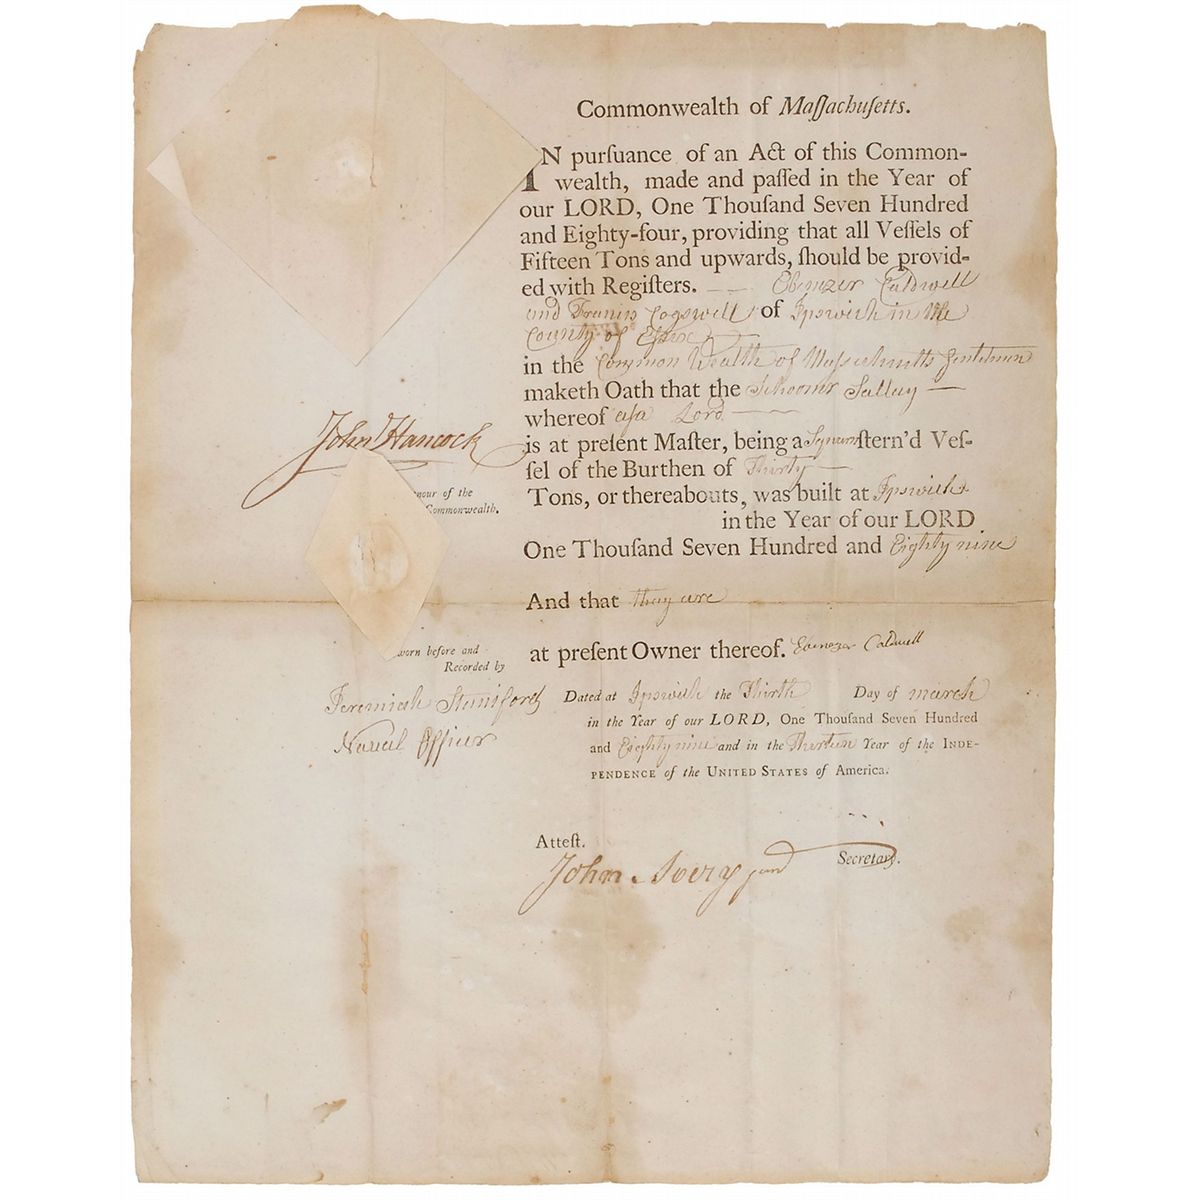 Commonwealth of Maſſachuſetts.
IN purſuance of an Act of this Common-
wealth, made and paſſed in the Year of
our LORD, One Thouſand Seven Hundred
and Eighty-four, providing that all Veſſels of
Fifteen Tons and upwards, ſhould be provid-
ed with Regiſters. Ebenezer Caldwell
and Francis Cogswell of Ipswich in the
County of Eſsex
in the Common Wealth of Maſsachusetts Gentlemen
maketh Oath that the Schooner Sallay
whereof aſa Lord
is at preſent Maſter, being a Squareſtern'd Veſ-
ſel of the Burthen of Thirty
Tons, or thereabouts, was built at Ipswich
in the Year of our LORD
One Thouſand Seven Hundred and Eighty nine
And that they are
at preſent Owner thereof. Ebenezer Caldwell
John Hancock
nour of the
Commonwealth.
worn before and
Recorded by
Jeremiah Staniford
Naval Officer
Dated at Ipswich the Thirth Day of march
in the Year of our LORD, One Thouſand Seven Hundred
and Eighty nine and in the Thirteen Year of the INDE-
PENDENCE of the UNITED STATES of America.
Atteſt.
John Avery junr Secretary.